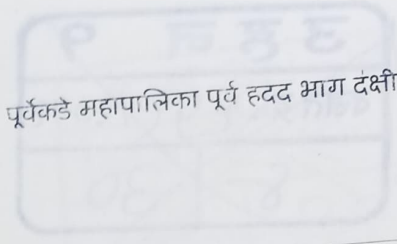 पूर्वेकडे महापालिका पूर्व हदद भाग दंक्षी